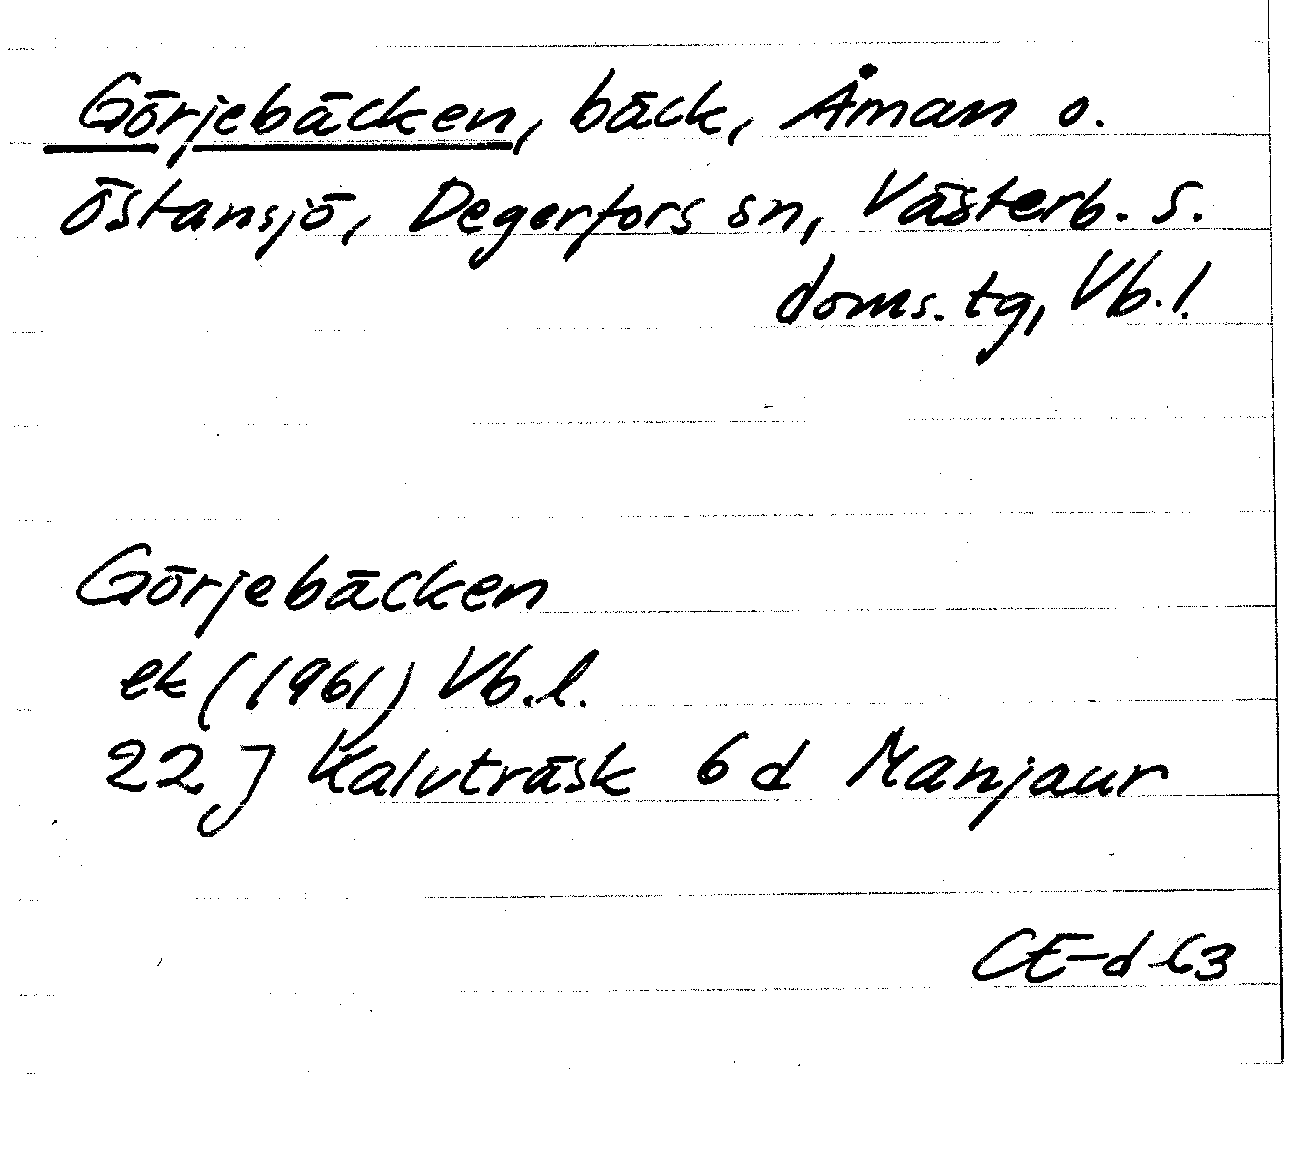 Görjebäcken, bäck, Åman o.
Östansjö, Degerfors sn, Västerb. s.
doms. tg, Vb. l.
Görjebäcken
ek (1961) Vb. l.
22 J Kalvträsk 6 d Manjaur
CE-d-63